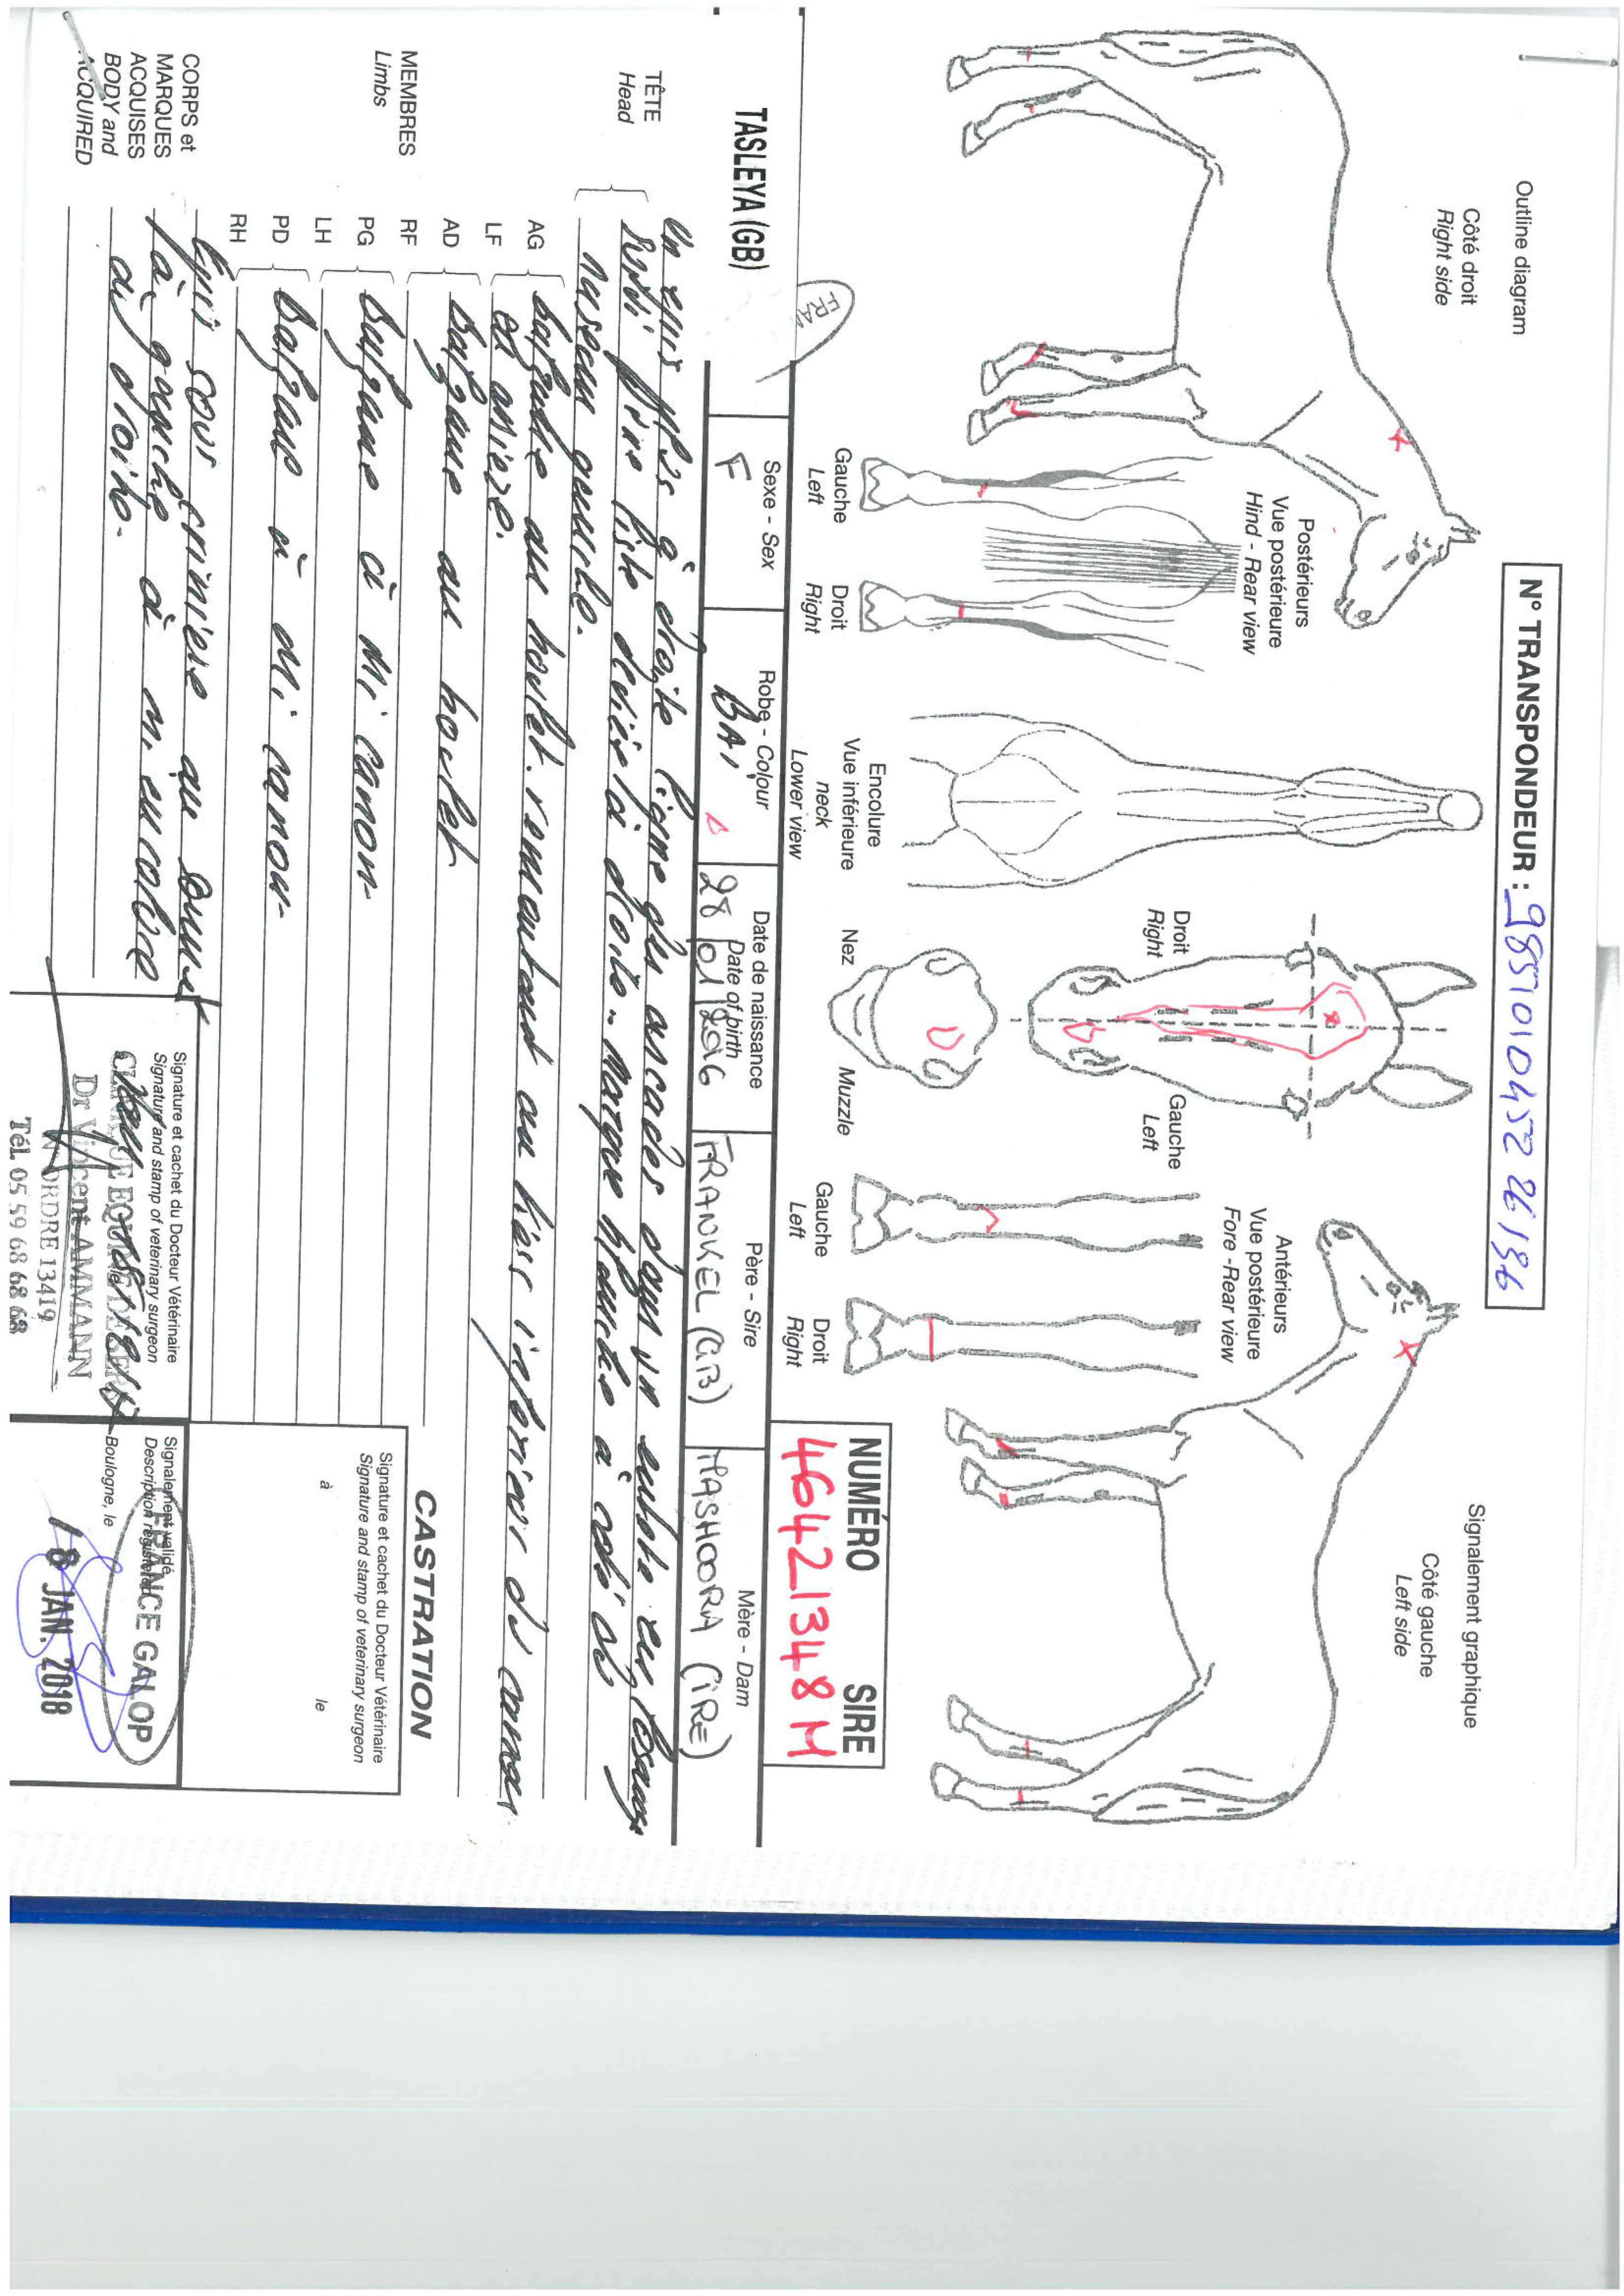 Outline diagram
N° TRANSPONDEUR : 985101045226186
Signalement graphique
Côté droit
Right side
Côté gauche
Left side
Postérieurs
Vue postérieure
Hind - Rear view
Gauche
Left
Droit
Right
Encolure
Vue inférieure
neck
Lower view
Droit
Right
Gauche
Left
Nez
Muzzle
Antérieurs
Vue postérieure
Fore - Rear view
Gauche
Left
Droit
Right
NUMÉRO SIRE
46421348 M
FRAN
TASLEYA (GB)
Sexe - Sex
F
Robe - Colour
BAI
Date de naissance
Date of birth
28/01/2016
Père - Sire
FRANKEL (GB)
Mère - Dam
MASHOORA (IRE)
TÊTE
Head
Un épis à droite ligne des arcades dans un en losange
liste à droite. Marque blanche à côté du
naseau gauche.
MEMBRES
Limbs
AG
LF
balzane au boulet remontant au tiers inférieur du canon
AD
RF
Balzane au boulet
PG
LH
Balzane à mi canon
PD
RH
Balzane à mi canon
CORPS et
MARQUES
ACQUISES
BODY and
ACQUIRED
Epis sous crinière au
à gauche à mi encolure
à droite.
CASTRATION
Signature et cachet du Docteur Vétérinaire
Signature and stamp of veterinary surgeon
à
le
Signature et cachet du Docteur Vétérinaire
Signature and stamp of veterinary surgeon
CLINIQUE EQUINE DE
Dr Vincent AMMANN
N° ORDRE 13419
Tél. 05 59 68 68 68
Signalement validé
Description registered
FRANCE GALOP
Boulogne, le
18 JAN. 2018